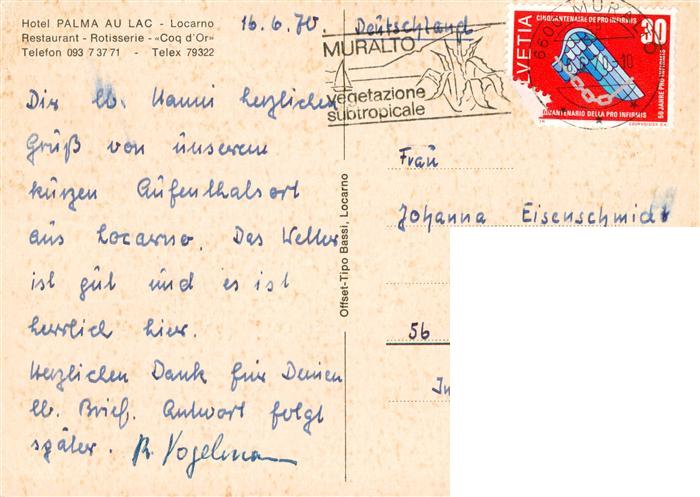 Hotel PALMA AU LAC - Locarno
Restaurant - Rotisserie - «Coq d'Or»
Telefon 093 7 37 71 - Telex 79322
16.6.70 Deutschland
Dir lb. Hanni herzlichen
Gruß von unserem
kurzen Aufenthalsort
aus Locarno. Das Wetter
ist gut und es ist
herrlich hier.
Herzlichen Dank für Deinen
lb. Brief. Antwort folgt
später. R. Vogelmann
Offset-Tipo Bassi, Locarno
MURALTO
vegetazione
subtropicale
CINQUANTENAIRE DE PRO INFIRMIS
30
HELVETIA
50 JAHRE PRO INFIRMIS
CINQUANTENARIO DELLA PRO INFIRMIS
COURVOISIER S.A.
6600 MURALTO
Frau
Johanna Eisenschmidt
56